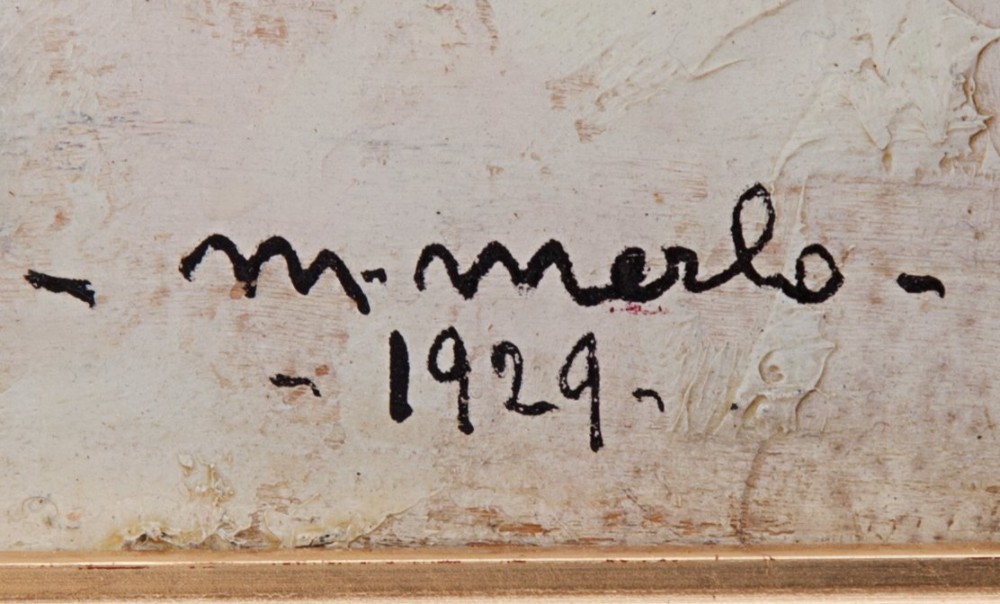 - m. merlo -
- 1929 -